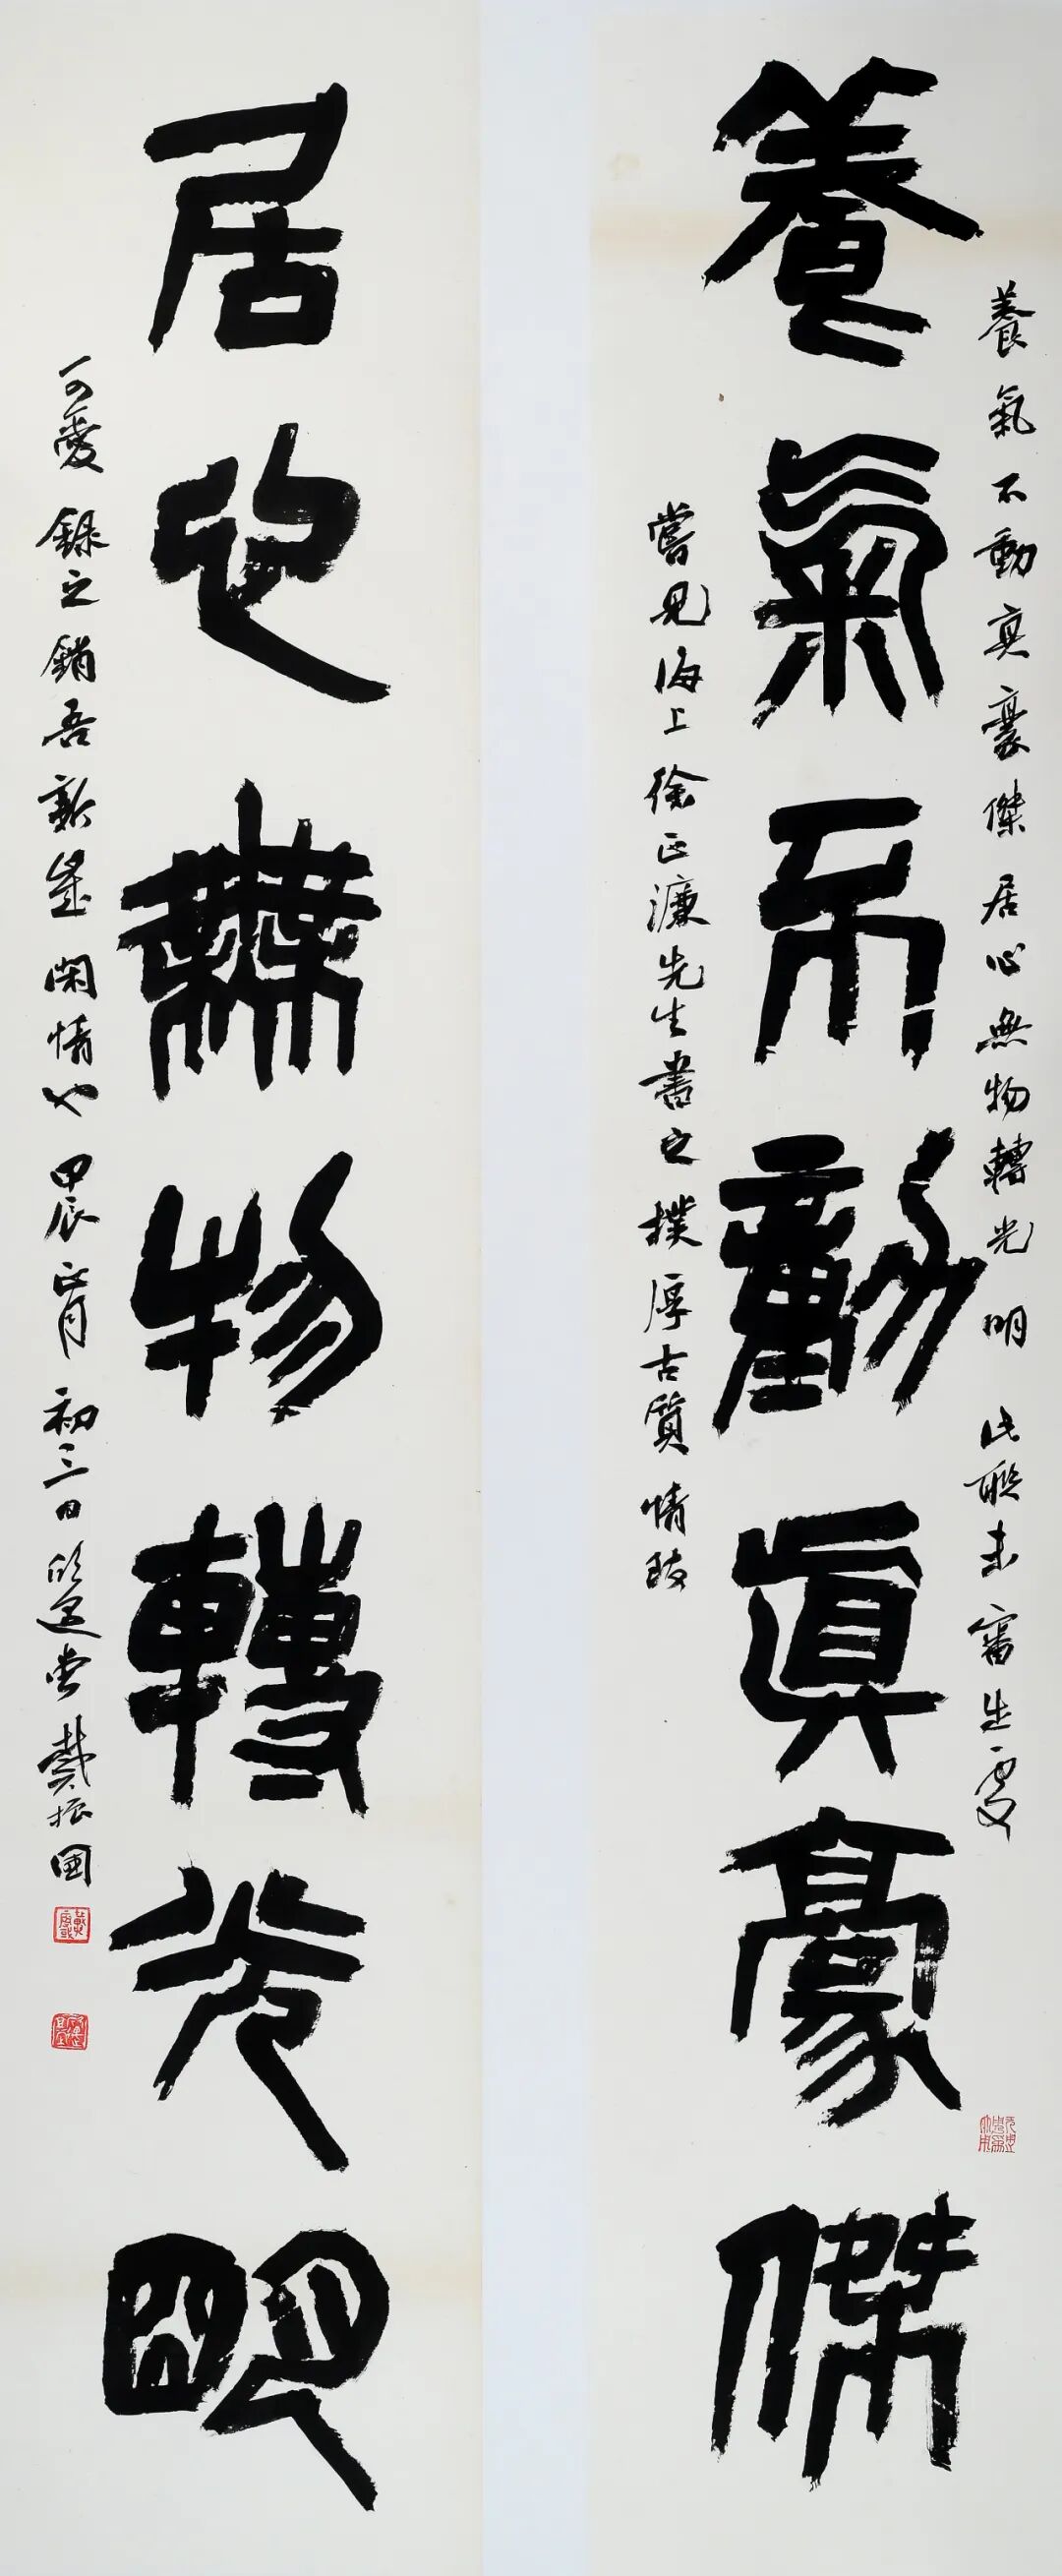 養氣不動真豪傑
養氣不動真豪傑居心無物轉光明 此聯未審出處
嘗見海上徐正濂先生書之樸厚古質情致
居心無物轉光明
可愛錄之銷吾新歲閑情也甲辰正月初三日 戴振國